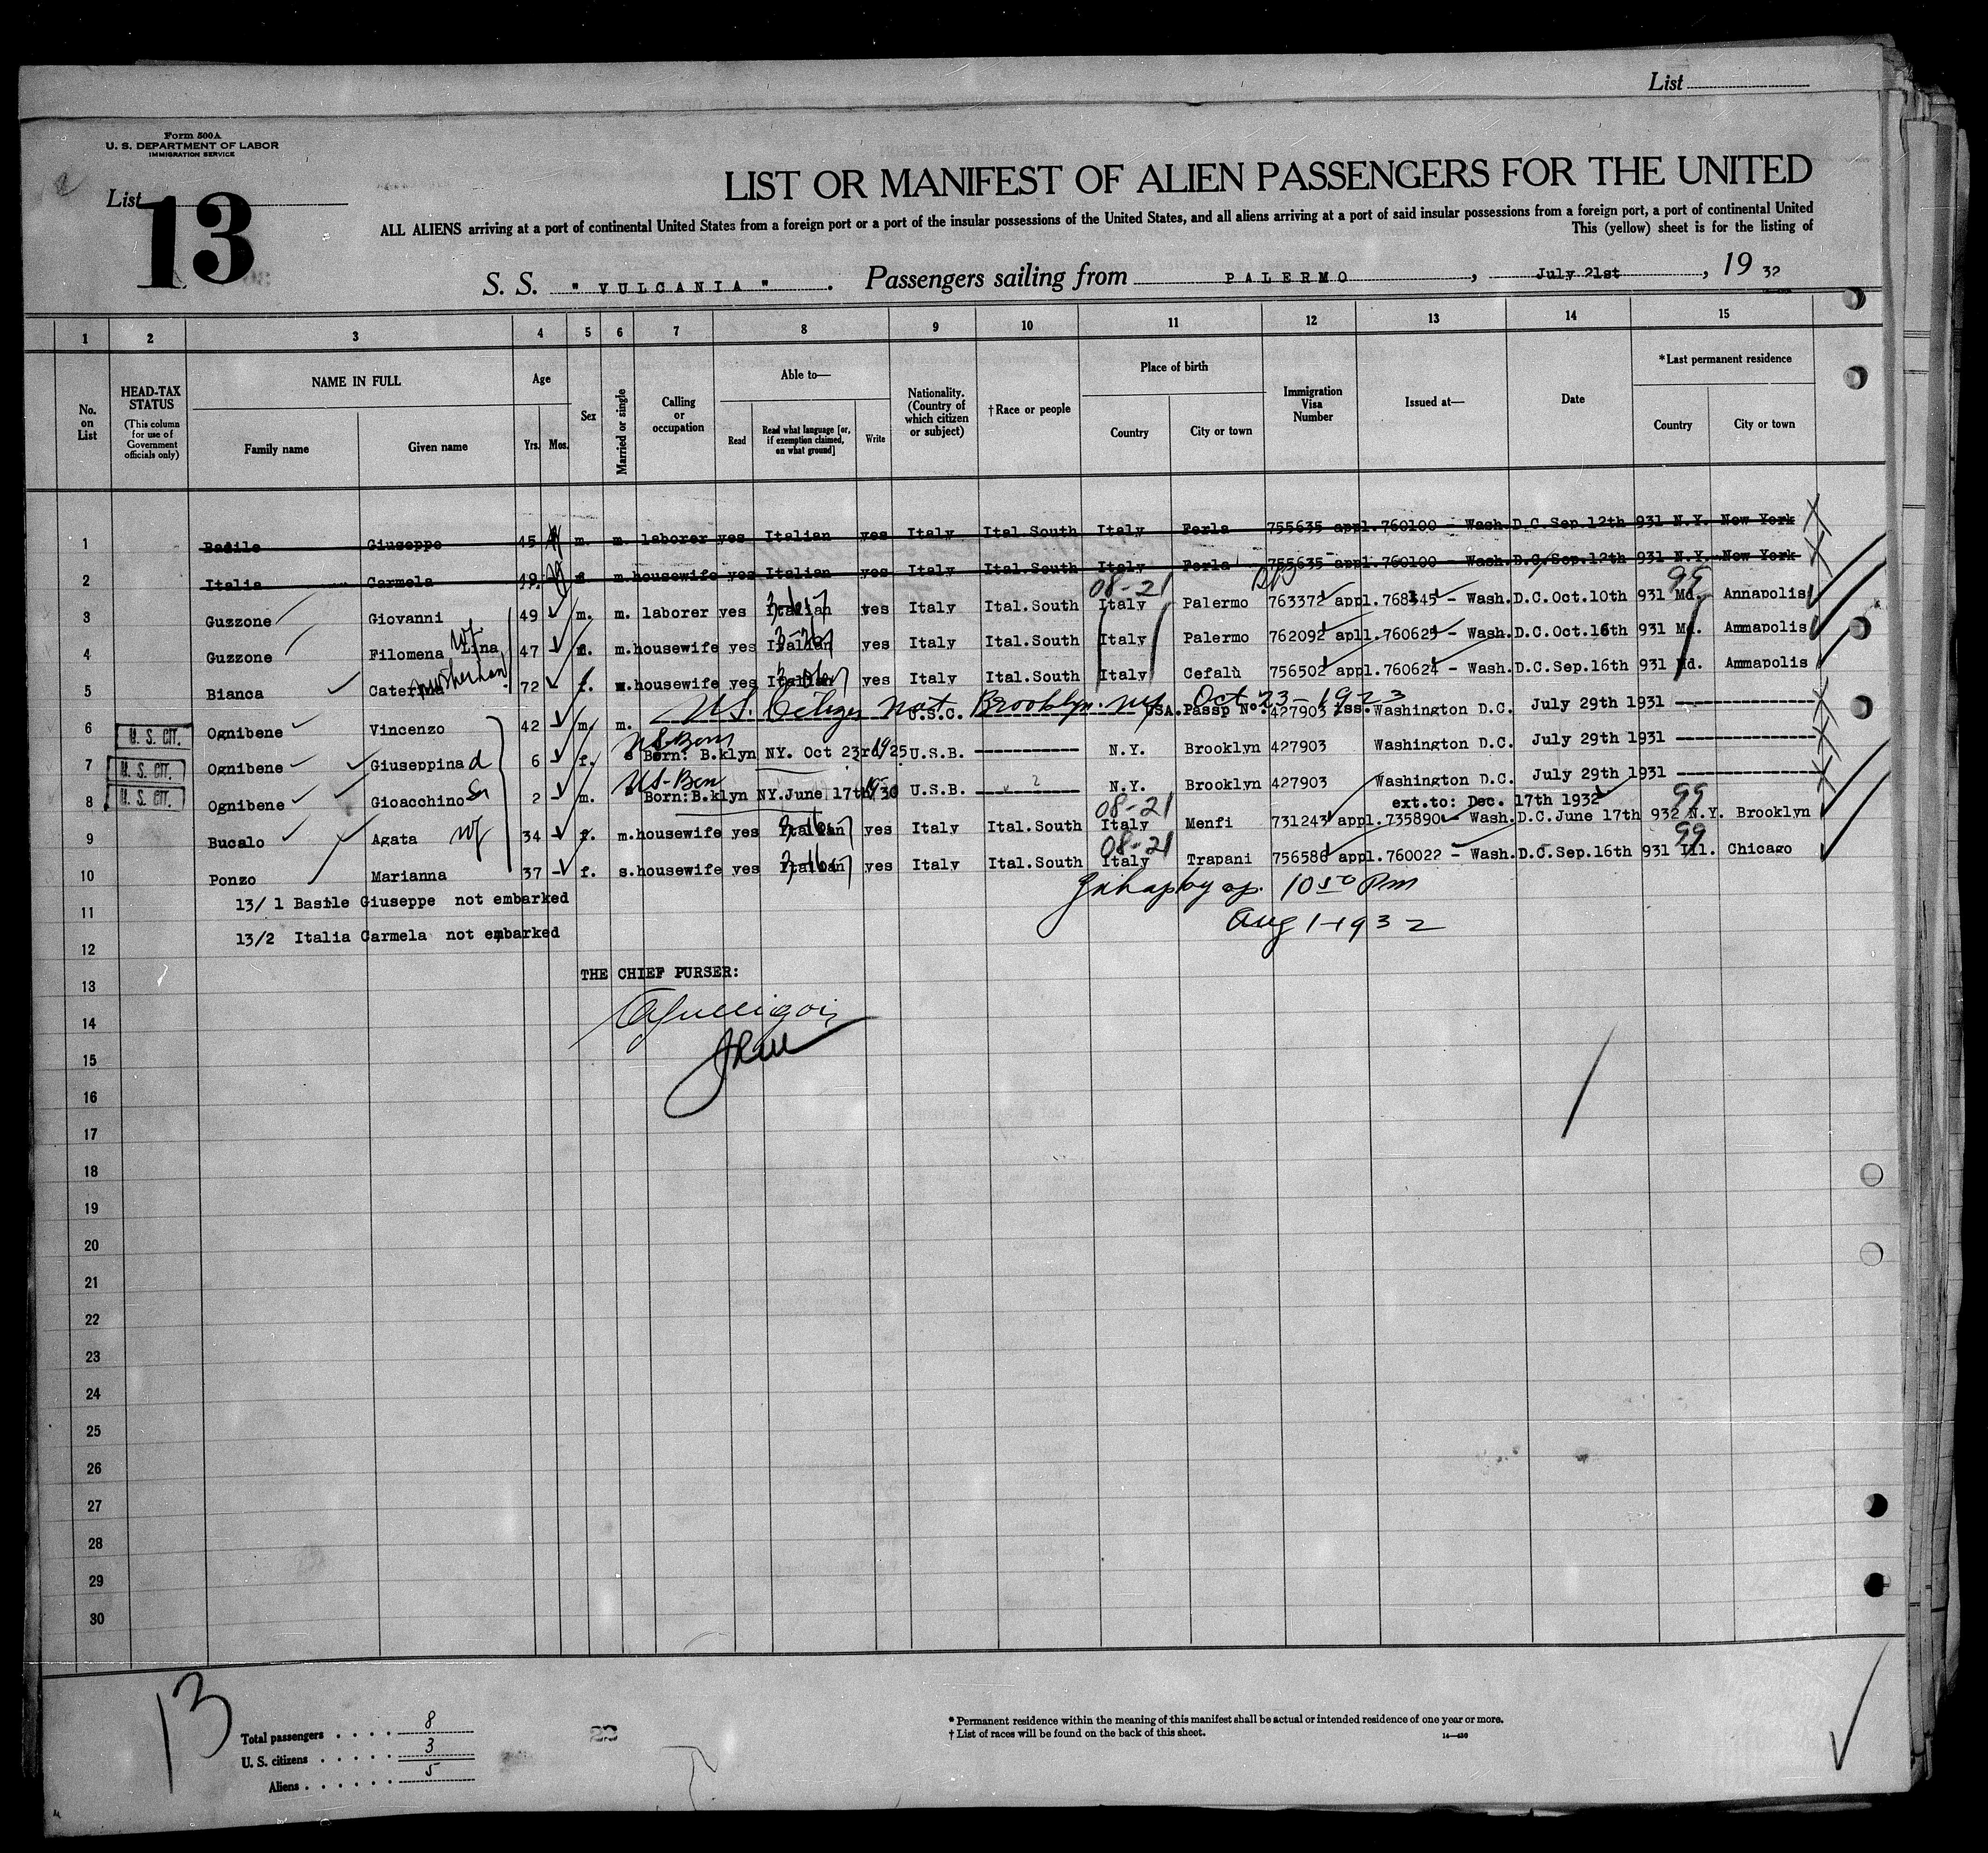 List
Form 500A
U. S. DEPARTMENT OF LABOR
IMMIGRATION SERVICE
List 13
LIST OR MANIFEST OF ALIEN PASSENGERS FOR THE UNITED
ALL ALIENS arriving at a port of continental United States from a foreign port or a port of the insular possessions of the United States, and all aliens arriving at a port of said insular possessions from a foreign port, a port of continental United
This (yellow) sheet is for the listing of
S. S. " VULCANIA " . Passengers sailing from PALERMO , July 21st , 19 32
1 2 3 4 5 6 7 8 9 10 11 12 13 14 15
No. on List
HEAD-TAX STATUS (This column for use of Government officials only)
NAME IN FULL Family name Given name
Age Yrs. Mos.
Sex
Married or single
Calling or occupation
Able to— Read Read what language [or, if exemption claimed, on what ground] Write
Nationality. (Country of which citizen or subject)
† Race or people
Place of birth Country City or town
Immigration Visa Number
Issued at—
Date
*Last permanent residence Country City or town
1 Basile Giuseppe 45 m. m. laborer yes Italian yes Italy Ital.South Italy Ferla 755635 appl.760100 - Wash.D.C.Sep.12th 931 N.Y. New York
2 Italia Carmela 49 f. m.housewife yes Italian yes Italy Ital.South Italy Ferla 755635 appl.760100 - Wash.D.C.Sep.12th 931 N.Y. New York
08-21 99
3 Guzzone Giovanni 49 m. m. laborer yes Italian yes Italy Ital.South Italy Palermo 763372 appl.768345 - Wash.D.C.Oct.10th 931 Md. Annapolis
4 Guzzone Filomena Lina wf. 47 f. m.housewife yes Italian yes Italy Ital.South Italy Palermo 762092 apll.760625 - Wash.D.C.Oct.16th 931 Md. Ammapolis
5 Bianca Caterina 72 f. w.housewife yes Italian yes Italy Ital.South Italy Cefalù 756502 appl.760624 - Wash.D.C.Sep.16th 931 Md. Ammapolis
U.S. Citizen Nat. Brooklyn. NY Oct 23-1923
6 U. S. CIT. Ognibene Vincenzo 42 m. m. U.S.C. USA.Passp No. 427903 Iss. Washington D.C. July 29th 1931
US-Born
7 U. S. CIT. Ognibene Giuseppina d 6 f. s Born: B.klyn NY. Oct 23rd 1925 U.S.B. N.Y. Brooklyn 427903 Washington D.C. July 29th 1931
US-Born
8 U. S. CIT. Ognibene Gioacchino Sn 2 m. Born: B.klyn NY.June 17th 30 U.S.B. N.Y. Brooklyn 427903 Washington D.C. July 29th 1931
ext.to: Dec. 17th 1932
08-21 99
9 Bucalo Agata wf 34 f. m.housewife yes Italian yes Italy Ital.South Italy Menfi 731243 appl.735890 - Wash.D.C.June 17th 932 N.Y. Brooklyn
08-21 99
10 Ponzo Marianna 37 f. s.housewife yes Italian yes Italy Ital.South Italy Trapani 756586 appl.760022 - Wash.D.C.Sep.16th 931 Ill. Chicago
13/ 1 Basile Giuseppe not embarked
10 50 Pm
11
Aug 1-1932
13/2 Italia Carmela not embarked
12
THE CHIEF PURSER:
13
14
15
16
17
18
19
20
21
22
23
24
25
26
27
28
29
30
13
Total passengers . . . . 8
U. S. citizens . . . . . 3
Aliens . . . . . . 5
* Permanent residence within the meaning of this manifest shall be actual or intended residence of one year or more.
† List of races will be found on the back of this sheet.